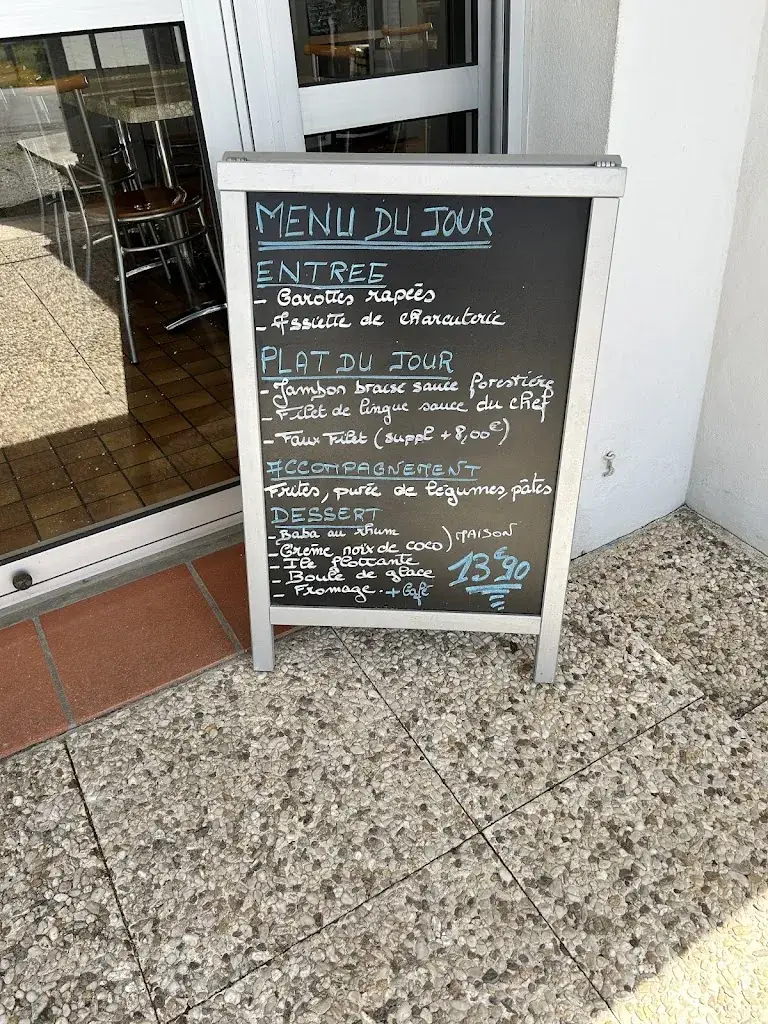 MENU DU JOUR
ENTREE
- Carottes rapées
- Assiette de charcuterie
PLAT DU JOUR
- Jambon braisé sauce forestière
- Filet de lingue sauce du chef
- Faux Filet (suppl + 8,00€)
ACCOMPAGNEMENT
Frites, purée de légumes, pâtes
DESSERT
- Baba au rhum
- Crème noix de coco) MAISON
- Ile flottante
- Boule de glace
- Fromage. + Café
13€90